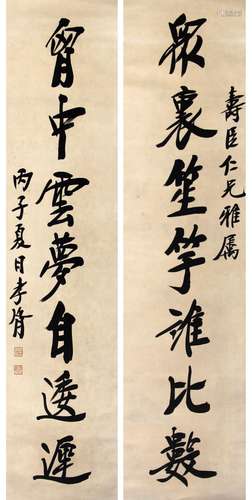 壽臣仁兄雅屬
眾裏笙竽誰比數
胷中雲夢自逶遲
丙子夏日孝胥